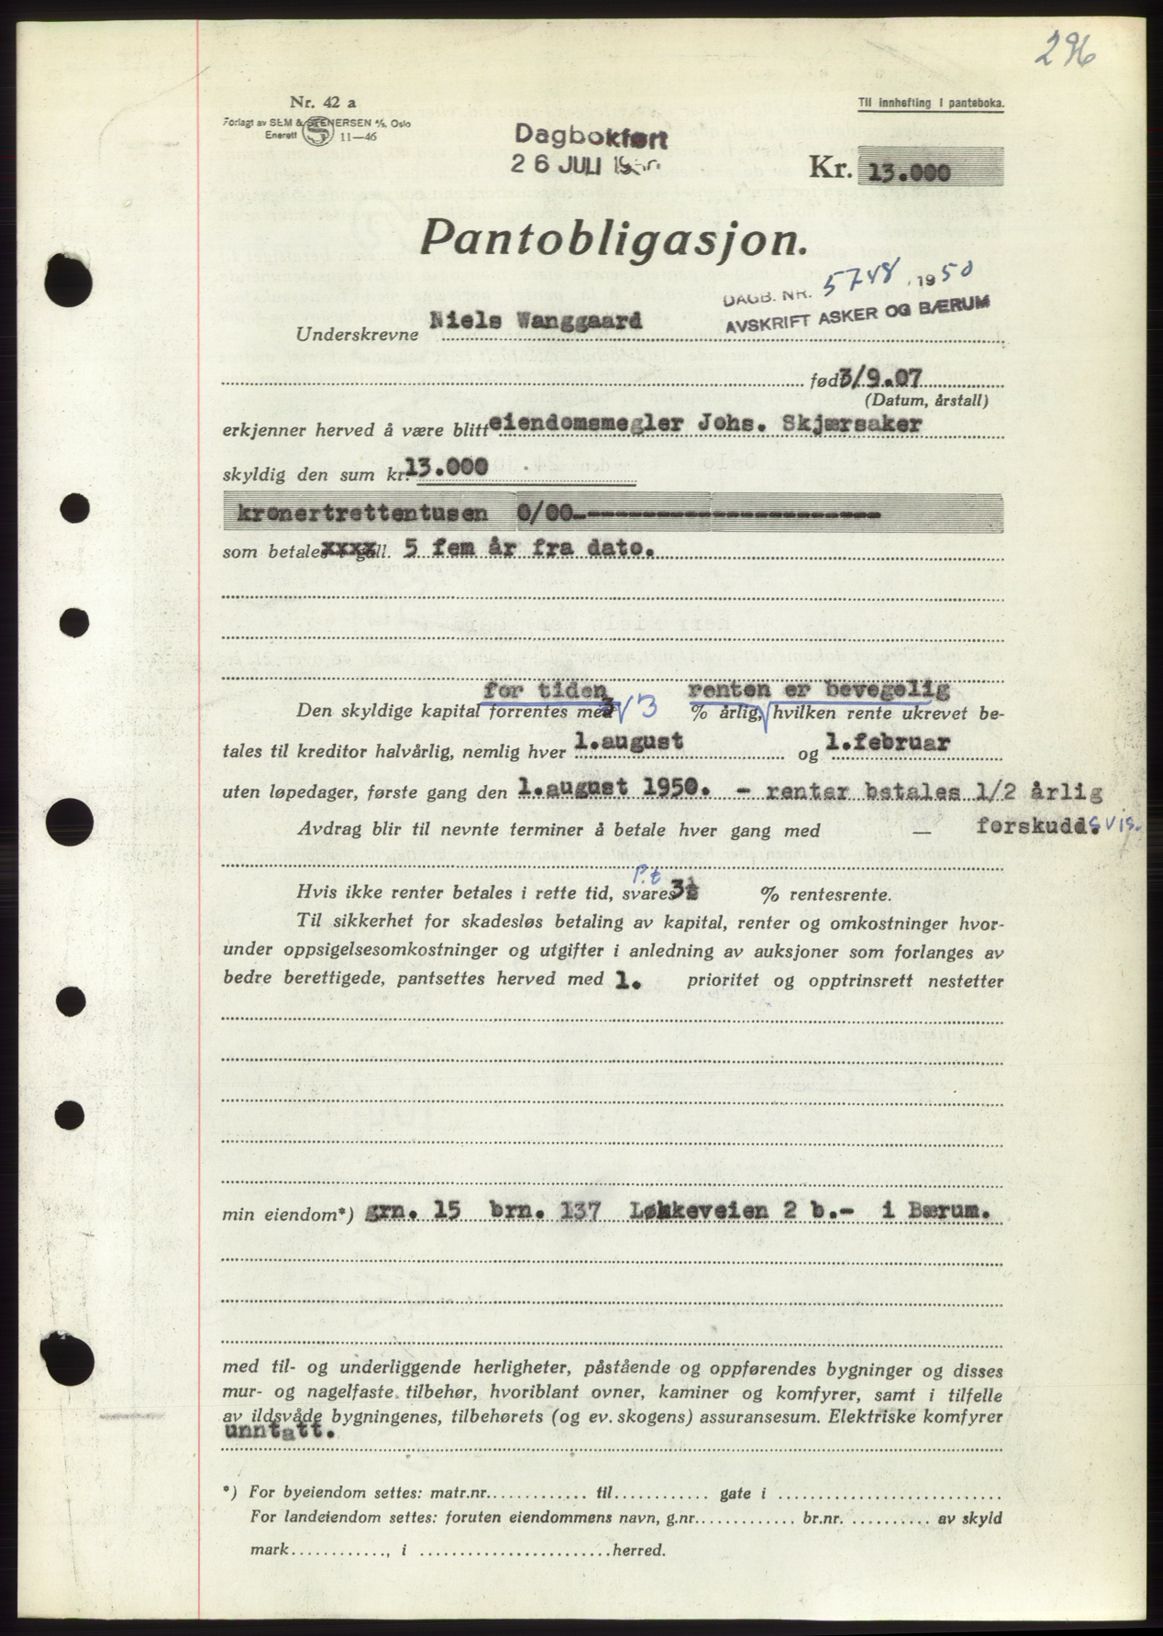 296
Nr. 42 a
Til innhefting i panteboka.
Forlagt av SEM & STENERSEN A/S, Oslo
Enerett S 11—46
Dagbokført
26 JULI 1950
Kr. 13.000
Pantobligasjon.
DAGB. NR. 5748 . 1950
AVSKRIFT ASKER OG BÆRUM
Underskrevne Niels Wanggaard
født 3/9.07
(Datum, årstall)
erkjenner herved å være blitt eiendomsmegler Johs. Skjærsaker
skyldig den sum kr. 13.000
kronertrettentusen 0/00-
som betales xxxx 5 fem år fra dato.
for tiden renten er bevegelig
Den skyldige kapital forrentes med 3 % årlig, hvilken rente ukrevet be-
tales til kreditor halvårlig, nemlig hver 1.august og 1.februar
uten løpedager, første gang den 1.august 1950. - renter betales 1/2 årlig
Avdrag blir til nevnte terminer å betale hver gang med — forskuddsvis.
P.t
Hvis ikke renter betales i rette tid, svares 3½ % rentesrente.
Til sikkerhet for skadesløs betaling av kapital, renter og omkostninger hvor-
under oppsigelsesomkostninger og utgifter i anledning av auksjoner som forlanges av
bedre berettigede, pantsettes herved med 1. prioritet og opptrinsrett nestetter
min eiendom*) grn. 15 brn. 137 Løkkeveien 2 b.- i Bærum.
med til- og underliggende herligheter, påstående og oppførendes bygninger og disses
mur- og nagelfaste tilbehør, hvoriblant ovner, kaminer og komfyrer, samt i tilfelle
av ildsvåde bygningenes, tilbehørets (og ev. skogens) assuransesum. Elektriske komfyrer
unntatt.
*) For byeiendom settes: matr.nr............. til............ gate i .............................
For landeiendom settes: foruten eiendommens navn, g.nr............. br.nr. .......... av skyld
mark............, i .........................herred.